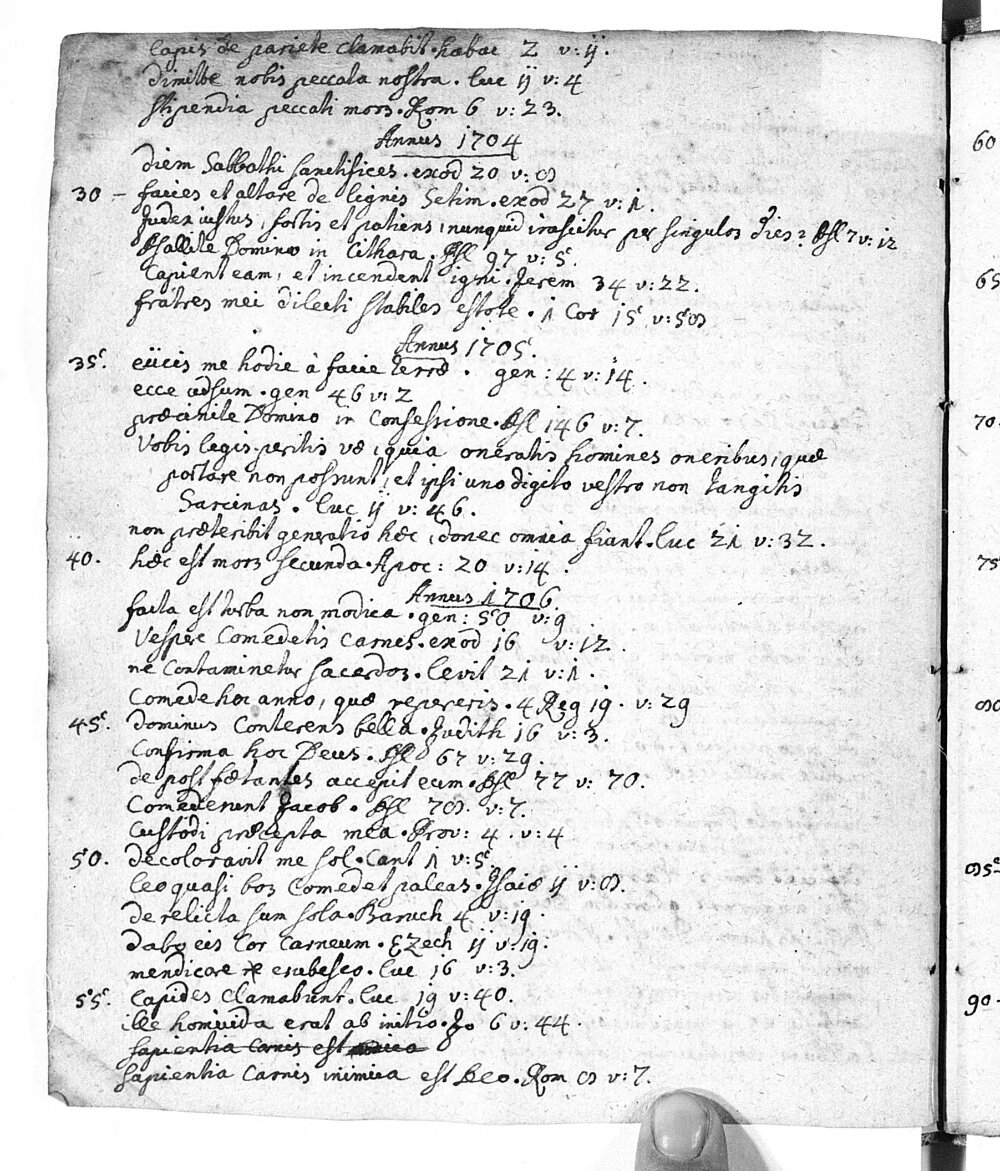 lapis de pariete clamabit. habac 2 v: ij.
dimitte nobis peccata nostra. luc ij v: 4
stipendia peccati mors. Rom 6 v: 23.
Annus 1704
diem Sabbathi sanctifices. exod 20 v: 8
30 - facies et altare de lignis Setim. exod 27 v: 1.
Judex iustus, fortis et patiens, nunquid irascitur per singulos dies? Psl 7 v: 12
Psallite Domino in Cithara. Psl 97 v: 5.
Capient eam, et incendent igni. Jerem 34 v: 22.
fratres mei dilecti stabiles estote. 1 Cor 15 v: 58
Annus 1705.
35. eiicis me hodie à facie terræ. gen: 4 v: 14.
ecce adsum. gen 46 v: 2
præcinite Domino in Confessione. Psl 146 v: 7.
Vobis legis peritis væ, quia oneratis homines oneribus, quæ
portare non possunt, et ipsi uno digito vestro non tangitis
Sarcinas. luc ij v: 46.
non præteribit generatio hæc, donec omnia fiant. luc 21 v: 32.
40. hæc est mors secunda. Apoc: 20 v: 14.
Annus 1706.
facta est turba non modica. gen: 50 v: 9
Vespere Comedetis carnes. exod 16 v: 12.
ne Contaminetur sacerdos. levit 21 v: 1.
Comede hoc anno, quæ repereris. 4 Reg 19. v: 29
45. dominus Conterens bella. Judith 16 v: 3.
Confirma hoc Deus. Psl 67 v: 29.
de post fætantes accepit eum. Psl 77 v: 70.
Comederunt Jacob. Psl 78. v: 7.
Custodi præcepta mea. Prov: 4. v: 4
50. decoloravit me sol. Cant 1 v: 5.
leo quasi bos Comedet paleas. Isaiæ ij v: 8.
derelicta sum sola. Baruch 4 v: 19.
dabo eis Cor Carneum. Ezech ij v: 19.
mendicare erubesco. luc 16 v: 3.
55. lapides clamabunt. luc 19 v: 40.
ille homicida erat ab initio. Jo 6 v: 44.
sapientia Carnis est
sapientia Carnis inimica est Deo. Rom 8 v: 7.
60
65
70.
75
80
85
90.